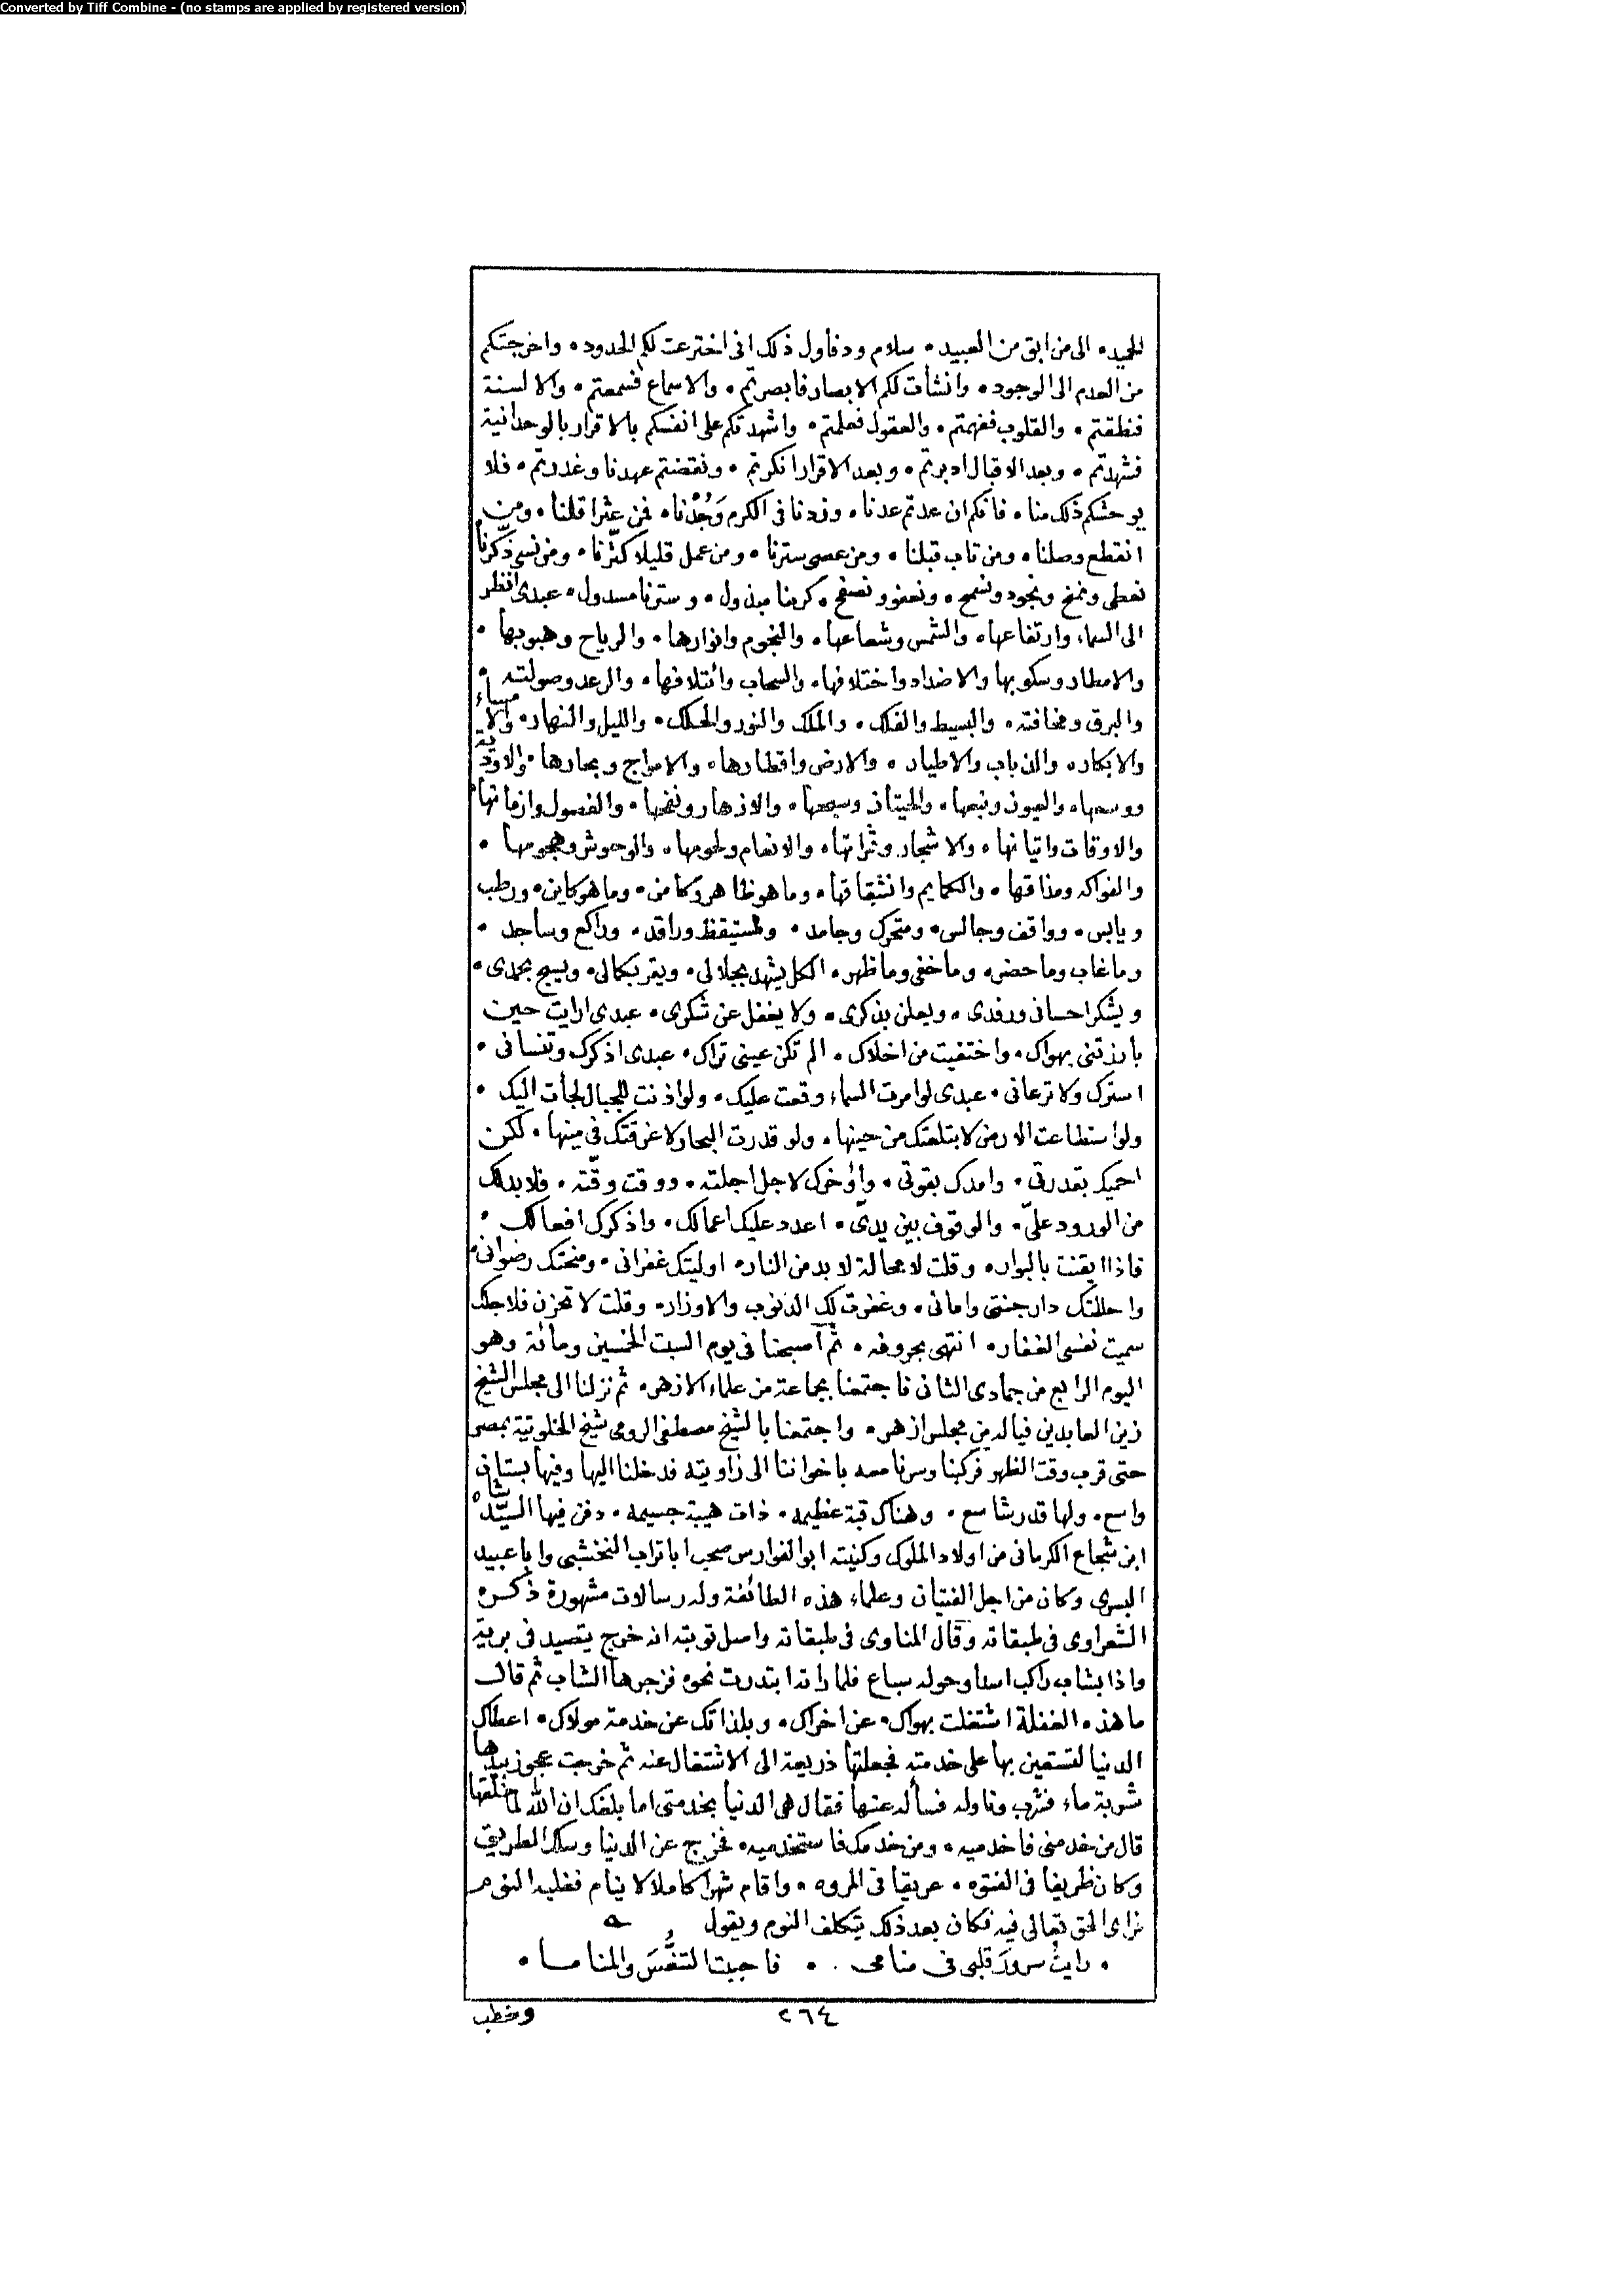 Converted by Tiff Combine - (no stamps are applied by registered version)
الحميد • الى من ابق من العبيد • سلام ود فأول ذلك انى اخترعت لكم الحدود • واخرجتكم
من العدم الى الوجود • وانشأت لكم الابصار فابصرتم • والاسماع فسمعتم • والالسنة
فنطقتم • والقلوب ففهمتم • والعقول فعلمتم • واشهدتكم على انفسكم بالاقرار بالوحدانية
فشهدتم • وبعد الاقبال ادبرتم • وبعد الاقرار انكرتم • ونقضتم عهدنا وغدرتم • فلا
يوحشكم ذلك منا • فانكم ان عدتم عدنا • وزدنا فى الكرم وَجُدْنا • فمن عثر اقلنا • ومن
انقطع وصلنا • ومن تاب قبلنا • ومن عصى سترنا • ومن عمل قليلا كثّرنا • ومن نسى ذكّرنا
نعطى ونمنح ونجود ونسمح • ونعفو ونصفح • كرمنا مبذول • وسترنا مسدول • عبدى انظر
الى السماء وارتفاعها • والشمس وشعاعها • والنجوم وانوارها • والرياح وهبوبها •
والامطار وسكوبها والاضداد واختلافها • والسحاب وائتلافها • والرعد وصولته •
والبرق ومخافته • والبسيط والفلك • والملك والنور والحلك • والليل والنهار • والامساء
والابكار • والذباب والاطيار • والارض واقطارها • والامواج وبحارها • والاودية
ووسعها • والعيون ونبعها • والحيتان وسبحها • والازهار ونفحها • والفصول وازمانها •
والاوقات واتيانها • والاشجار وثمراتها • والانعام ولحومها • والوحوش وهجومها •
والفواكه ومذاقها • والكمايم وانشقاقها • وما هو ظاهر وكامن • وما هو كاين • ورطب
ويابس • وواقف وجالس • ومتحرك وجامد • ومستيقظ وراقد • وراكع وساجد •
وما غاب وما حضر • وما خفى وما ظهر • الكل يشهد بجلالى • ويقر بكمالى • ويسبح بحمدى •
ويشكر احسانى ورفدى • ويعلن بذكرى • ولا يغفل عن شكرى • عبدى ارايت حين
بارزتنى بهواك • واختفيت من اخلاك • الم تكن عينى تراك • عبدى اذكرك وتنسانى •
استرك ولا ترعانى • عبدى لو امرت السماء وقعت عليك • ولو اذنت للجبال لجأت اليك •
ولو استطاعت الارض لابتلعتك من حينها • ولو قدرت البحار لاغرقتك فى مينها • لكن
احميك بقدرتى • وامدك بقوتى • واؤخرك لاجل اجلته • ووقت وقّته • فلا بد لك
من الورود علىّ • والوقوف بين يدىّ • اعدد عليك اعمالك • واذكرك افعالك •
فاذا ايقنت بالبوار • وقلت لا محالة لا بد من النار • اوليتك غفرانى • ومنحتك رضوانى •
واحللتك دار جنتى وامانى • وغفرت لك الذنوب والاوزار • وقلت لا تحزن فلاجلك
سميت نفسى الغفار • انتهى بحروفه • ثم أصبحنا فى يوم السبت الخمسين ومائة وهو
اليوم الرابع من جمادى الثانى فاجتمعنا بجماعة من علماء الازهر • ثم نزلنا الى مجلس الشيخ
زين العابدين فياله من مجلس ازهر • واجتمعنا بالشيخ مصطفى الرومى شيخ الخلوتية بمصر
حتى قرب وقت الظهر فركبنا وسرنا معه باخواننا الى زاويته فدخلنا اليها وفيها بستان
واسع • ولها قدر شاسع • وهناك قبة عظيمه • ذات هيبة جسيمه • دفن فيها السيّد شاه
ابن شجاع الكرمانى من اولاد الملوك وكنيته ابو الفوارس صحب ابا تراب النخشبى وابا عبيد
البسرى وكان من اجل الفتيان وعلماء هذه الطائفة وله رسالات مشهورة ذكره
الشعراوى فى طبقاته وقال المناوى فى طبقاته واصل توبته انه خرج يتصيد فى برية
واذا بشاب راكب اسدا وحوله سباع فلما راته ابتدرت نحوه فزجرها الشاب ثم قال
ما هذه الغفلة اشتغلت بهواك • عن اخراك • وبلذاتك عن خدمة مولاك • اعطاك
الدنيا لتستعين بها على خدمته فجعلتها ذريعة الى الاشتغال عنه ثم خرجت عجوز بيدها
شربة ماء فشرب وناوله فسأله عنها فقال هى الدنيا بخدمتى اما بلغك ان الله لما خلقها
قال من خدمنى فاخدميه • ومن خدمك فاستخدميه • فخرج عن الدنيا وسلك الطريق
وكان ظريفا فى الفتوه • عريقا فى المروه • واقام شهرا كاملا لا ينام فغلبه النوم
فراى الحق تعالى فيه فكان بعد ذلك يتكلف النوم ويقول
• رايتُ سرورَ قلبى فى منامى • • فاحببت التنعُّسَ والمناما •
٢٦٤
وخطب